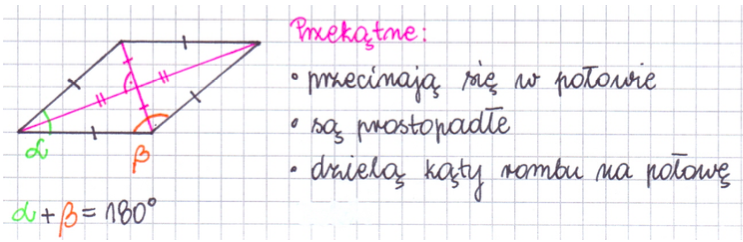 Przekątne:
• przecinają się w połowie
• są prostopadłe
• dzielą kąty rombu na połowę
α
β
α + β = 180°